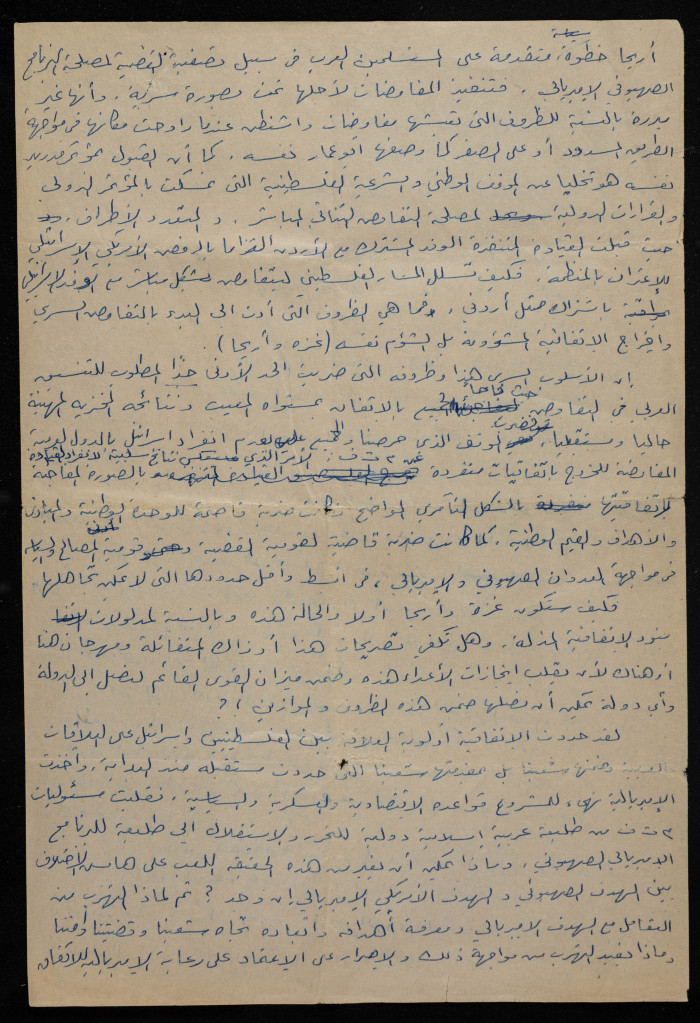 أريحا خطوة متقدمة على المستسلمين العرب في سبيل تصفية القضية لمصلحة البرنامج
الصهيوني الإمبريالي. فتنفيذ المفاوضات لأجلها تمت بصورة سرية، وأنها غير
مبررة بالنسبة للظروف التي تعيشها مفاوضات واشنطن عندما راوحت مكانها في مواجهة
الطريق المسدود أو على الصفر كما وصفها أبو عمار نفسه. كما أن القبول بمؤتمر مدريد
نفسه هو تخليا عن الموقف الوطني والشرعية الفلسطينية التي تمسكت بالمؤتمر الدولي
والقرارات الدولية لمصلحة التفاوض الثنائي المباشر. و المتعدد الأطراف.
حيث قبلت القيادة المتنفذة الوفد المشترك مع الأردن التزاما بالرفض الأمريكي الإسرائيلي
للاعتراف بالمنظمة. فكيف تسلل المسار الفلسطيني ليتفاوض بشكل مباشر مع الوفد الإسرائيلي
باشتراك ممثل أردني، فما هي الظروف التي أدت الى البدء بالتفاوض السري
وإخراج الاتفاقية المشؤومة بل الشؤم نفسه (غزه وأريحا).
إن الأسلوب السري هذا وظروفه التي ضربت الحد الأدنى جدًا المطلوب للتنسيق
العربي في التفاوض حيث فاجأ بالاتفاق بمستواه المعيب ونتائجه المخزية المهينة
حاليا ومستقبليا، الموقف الذي حرصنا بعدم انفراد اسرائيل بالدول العربية
المفاوضة للخروج باتفاقيات منفردة عن م ت ف. الأمر الذي نتائج سلبية بالصورة المفاجئة
لاتفاقيتها بالشكل التآمري الواضح وكانت ضربة قاصمة للوحدة الوطنية والمبادئ
والأهداف والقيم الوطنية. كما كانت ضربة قاضية لقومية القضية وقومية المصالح
في مواجهة العدوان الصهيوني والإمبريالي، في أبسط وأقل حدودها التي لا يمكن تجاهلها
فكيف ستكون غزة وأريحا أولا والحالة هذه وبالنسبة لمدلولات
بنود الاتفاقية المذلة. وهل تكفي تصريحات هذا أو ذاك المتفائلة ومهرجان هنا
أو هناك لأن يقلب انجازات الأعداء هذه وضمن ميزان القوى القائم لنصل إلى الدولة
وأي دولة يمكن أن نصلها ضمن هذه الظروف والموازين ؟!
لقد حددت الاتفاقية أولوية العلاقة بين الفلسطينيين وإسرائيل على العلاقات
العربية وضمنها شعبنا بل بمقدمتها شعبنا التي حددت مستقبله منذ البداية. وأخذت
الإمبريالية تهيء للمشروع قواعده الاقتصادية والعسكرية والسياسية. فقلبت مسئوليات
م ت ف من طليعة عربية إسلامية دولية للتحرر والاستقلال الى طليعة للبرنامج
الإمبريالي الصهيوني، وماذا يمكن أن يغير من هذه الحقيقة اللعب على هامش الاختلاف
بين الهدف الصهيوني والهدف الأمريكي الإمبريالي إن وجد ؟ ثم لماذا التهرب من
التعامل مع الهدف الإمبريالي ومعرفة أهدافه وأبعاده تجاه شعبنا وقضيتنا وأمتنا
وماذا يفيد التهرب من مواجهة ذلك والإصرار على الاعتماد على رعاية الإمبريالية للاتفاق